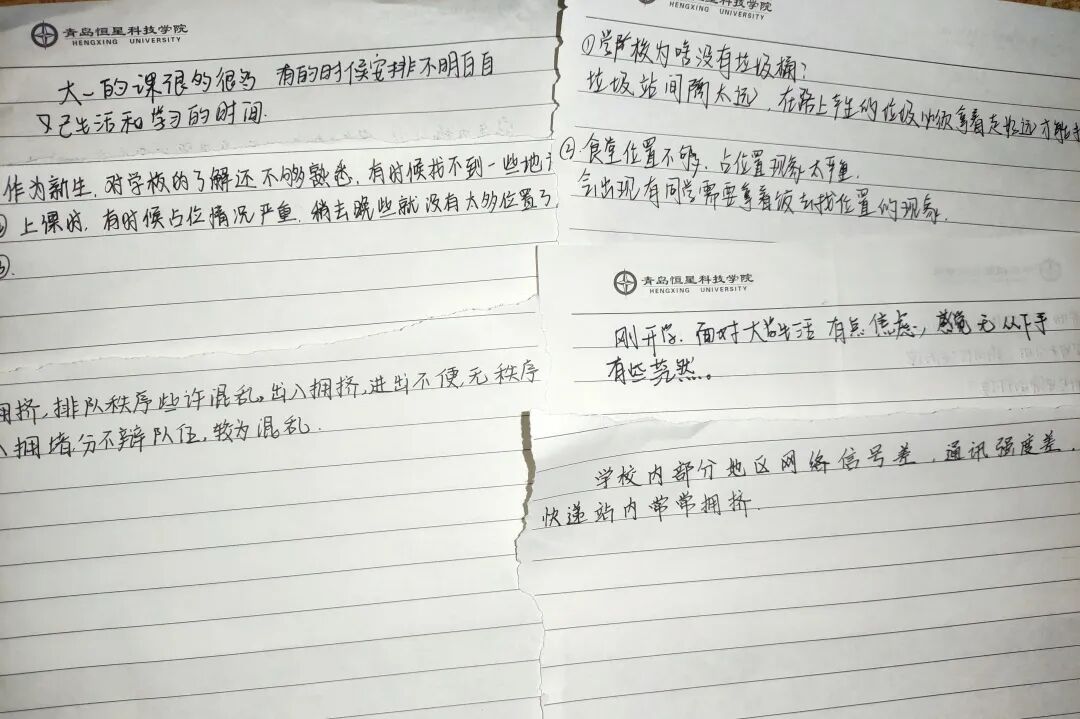 青岛恒星科技学院
HENGXING UNIVERSITY
大一的课很的很多 有的时候安排不明白自
又己生活和学习的时间.
作为新生.对学校的了解还不够熟悉,有时候找不到一些地
上课时,有时候占位情况严重,稍去晚些就没有太多位置了
③.
拥挤,排队秩序些许混乱,出入拥挤,进出不便,无秩序
拥堵,分不辩队伍,较为混乱.
青岛恒星科技学院
HENGXING UNIVERSITY
①学校为啥没有垃圾桶?
垃圾站间隔太远,在路上产生的垃圾必须拿着走好远才能
②食堂位置不够,占位置现象太严重,
会出现有同学需要拿着饭去找位置的现象.
青岛恒星科技学院
HENGXING UNIVERSITY
刚开学.面对大学生活 有点焦虑,感觉无从下手
有些茫然。
学校内部分地区网络信号差,通讯强度差,
快递站内常常拥挤.